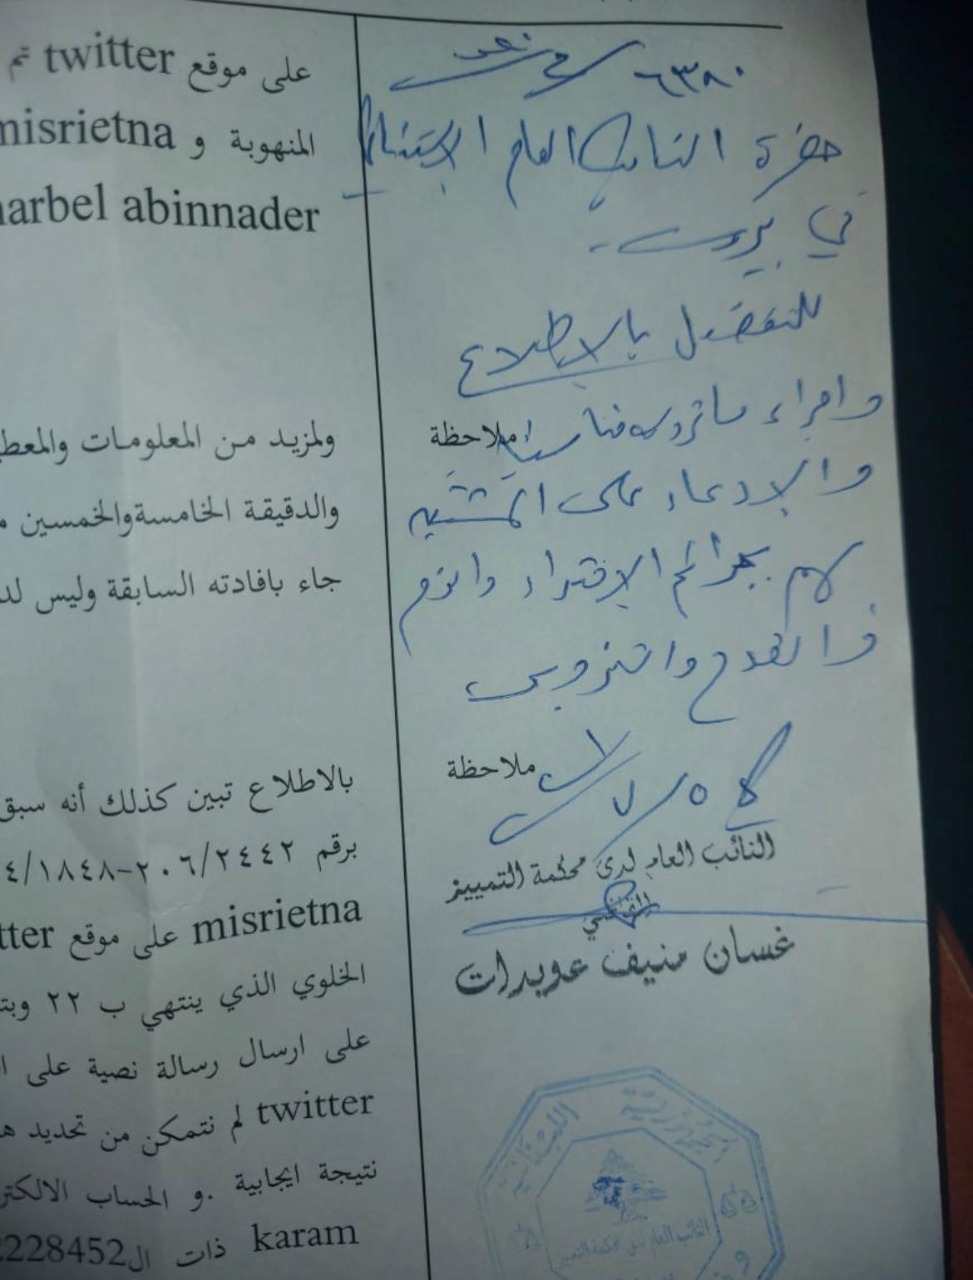 ٦٣٨٠ /م/
حضرة النائب العام الاستئنافي
في بيروت -
للتفضل بالاطلاع
واجراء ما ترونه مناسبا
والادعاء على المشتبه
بجرائم الافتراء والذم
والقدح
٧/٥
النائب العام لدى محكمة التمييز
القاضي
غسان منيف عويدات
ملاحظة
ملاحظة
على موقع twitter تم
المنهوبة و misrietna
harbel abinnader
ولمزيد من المعلومات والمعط
والدقيقة الخامسة والخمسين
جاء بافادته السابقة وليس لد
بالاطلاع تبين كذلك أنه سبق
برقم ٢٠٦/٢٤٤٢-٤/١٨٤٨
misrietna على موقع tter
الخلوي الذي ينتهي ب ٢٢ وبت
على ارسال رسالة نصية على ا
twitter لم نتمكن من تحديد ه
نتيجة ايجابية .و الحساب الالكتر
karam ذات ال2228452
الجمهورية اللبنانية
النائب العام لدى محكمة التمييز